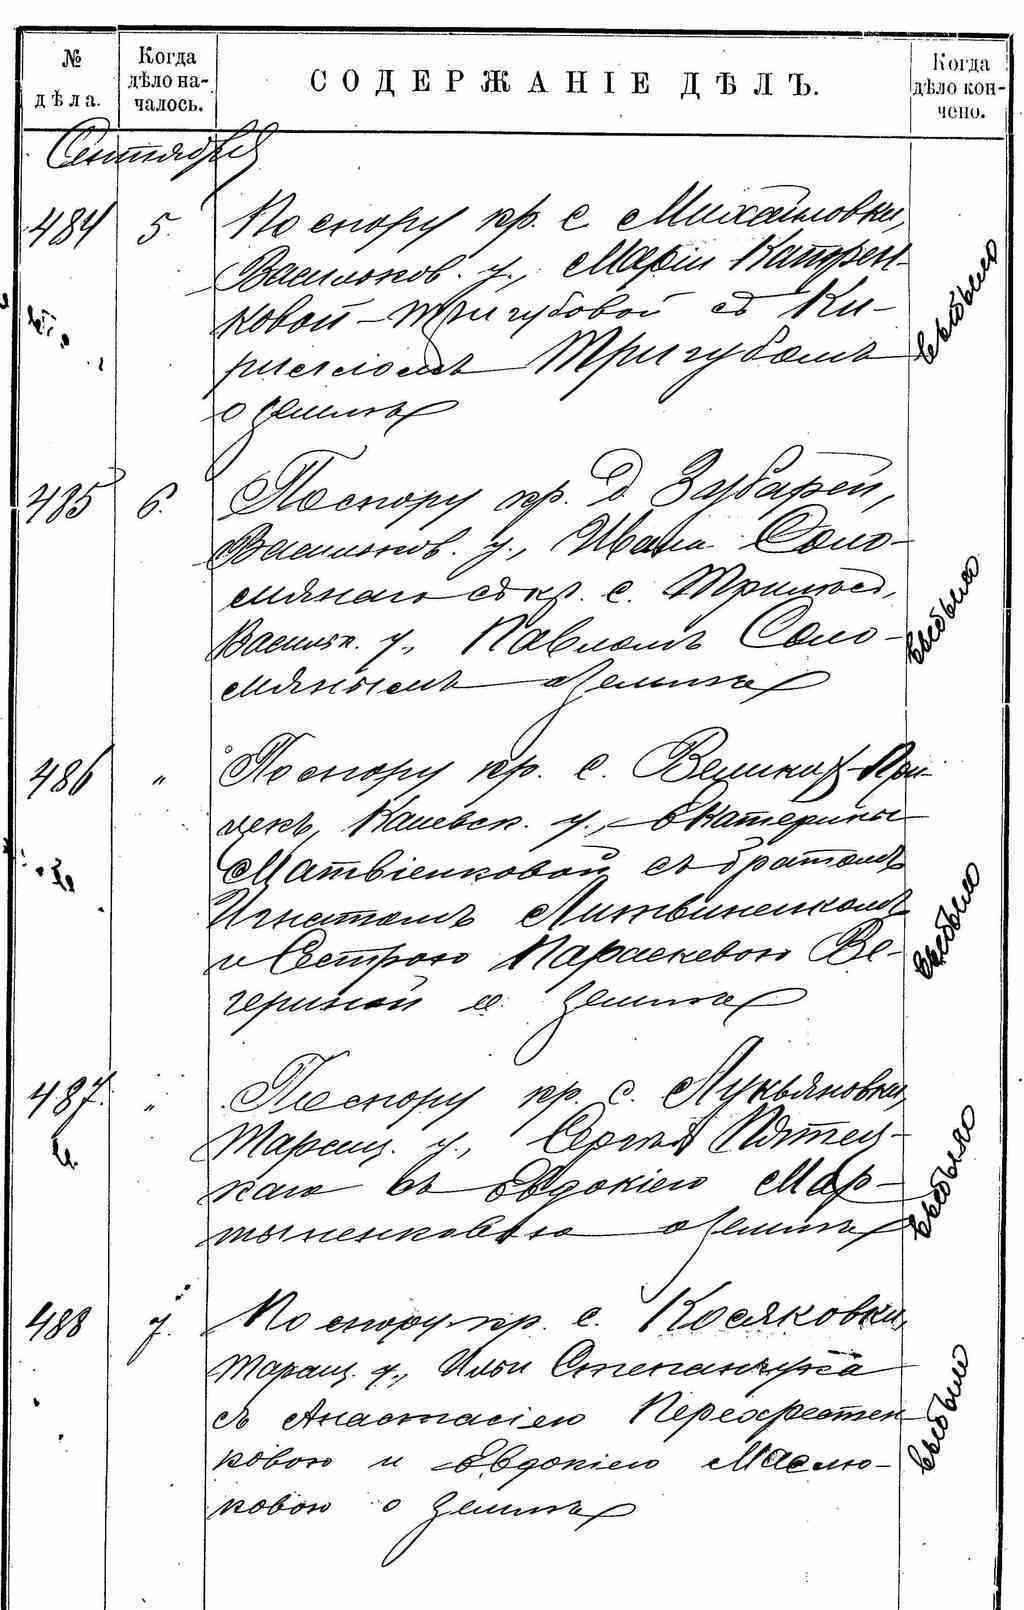 № дѣла.
Когда дѣло на-
чалось.
СОДЕРЖАНІЕ ДѢЛЪ.
Когда дѣло кон-
чено.
Сентябрь
484 5. По спору кр. с. Михайловки,
Васильков. у., Маріи Катрен-
ковой-Тригубовой съ Ки-
рилломъ Тригубомъ
о землѣ
выбыло
485 6. По спору кр. д. Зубарей,
Васильков. у., Ивана Соло-
мянаго съ кр. с. Трилѣсъ,
Васильк. у., Павломъ Соло-
мянымъ о землѣ
выбыло
486 " По спору кр. с. Великих-При-
цекъ, Каневск. у., Екатерины
Матвіенковой съ братомъ
Игнатомъ Литвиненкомъ
и Сестрою Параскевою Ве-
гериной о землѣ
выбыло
487. " По спору кр. с. Лукьяновки,
Таращ. у., Сергѣя Пятец-
каго съ Евдокіею Мар-
тыненковою о землѣ
выбыло
488 7. По спору кр. с. Косяковки,
Таращ. у., Ильи Степанчука
съ Анастасіею Перехрестен-
ковою и Евдокіею Маслю-
ковою о землѣ
выбыло